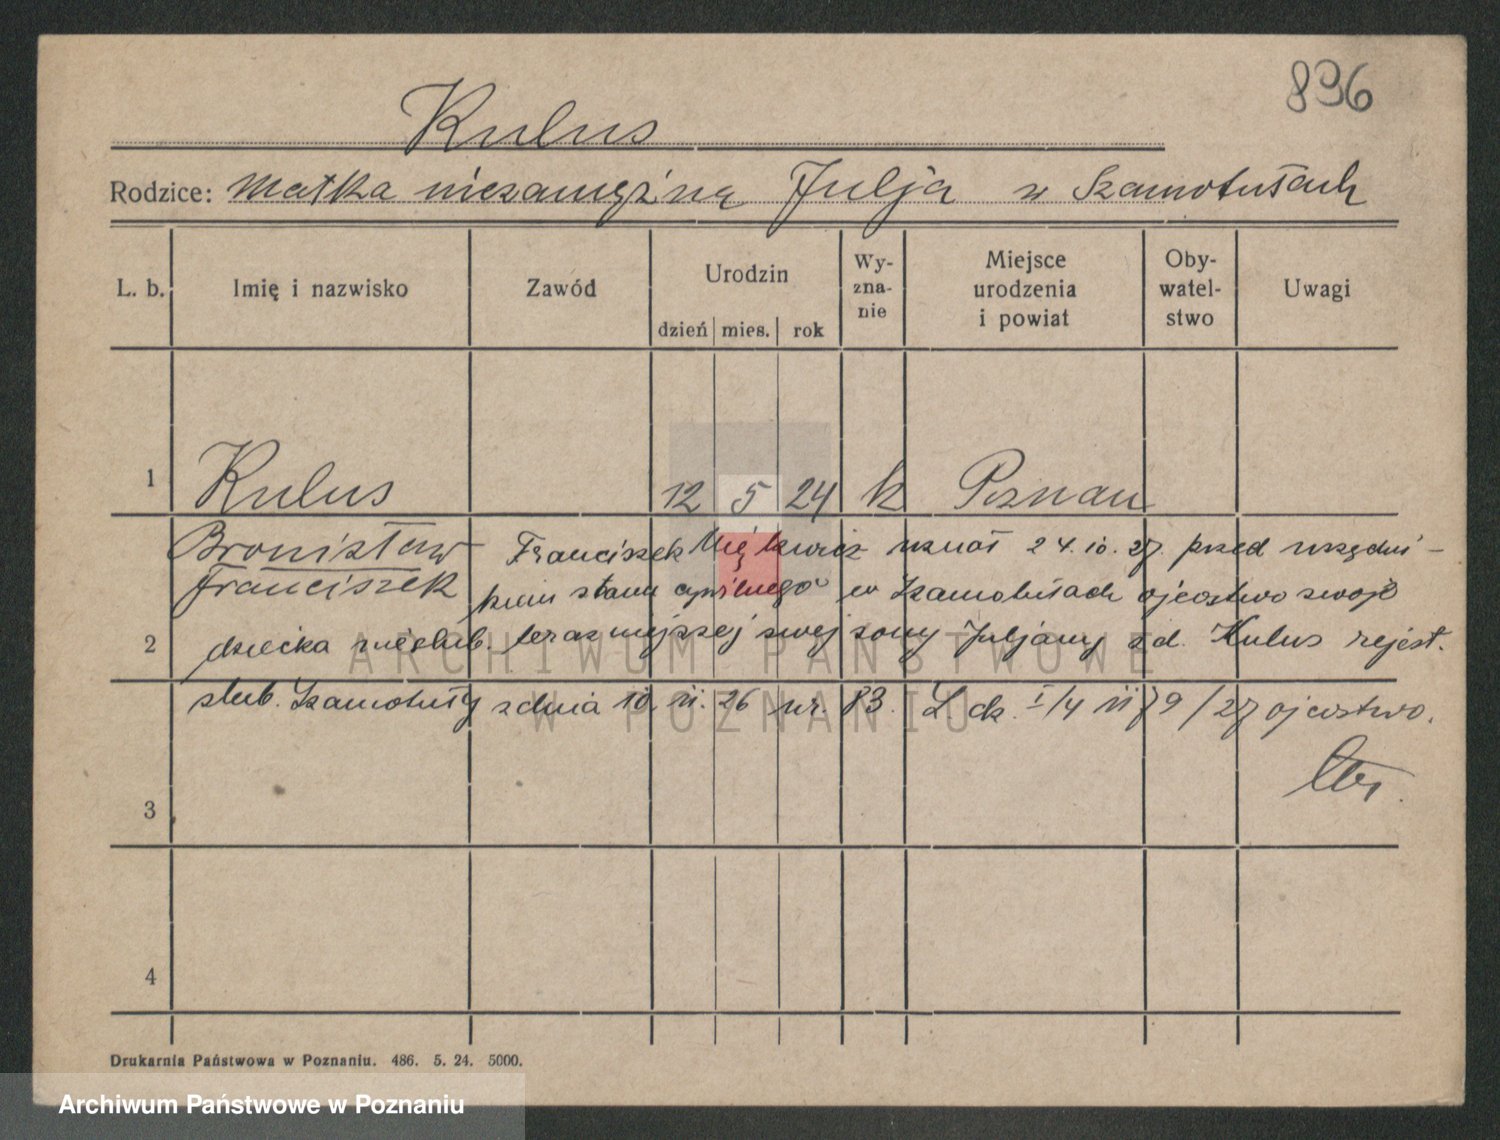 896
Kulus
Rodzice: Matka niezamężna Julja w Szamotułach
L. b. Imię i nazwisko Zawód Urodzin dzień mies. rok Wy-zna-nie Miejsce urodzenia i powiat Oby-watel-stwo Uwagi
1 Kulus 12 5 24 k Poznań
Bronisław Franciszek uznał 24.10.27. przed urzędni-
Franciszek kiem stanu cywilnego w Szamotułach ojcostwo swoje
2 dziecka nieślub. teraźniejszej swej żony Juljany zd. Kulus rejest.
ślub. Szamotuły z dnia 10. 11. 26 nr. 83. L. dz. I/4 1179/27 ojcostwo.
3
4
Drukarnia Państwowa w Poznaniu. 486. 5. 24. 5000.
ARCHIWUM PAŃSTWOWE
W POZNANIU
Archiwum Państwowe w Poznaniu